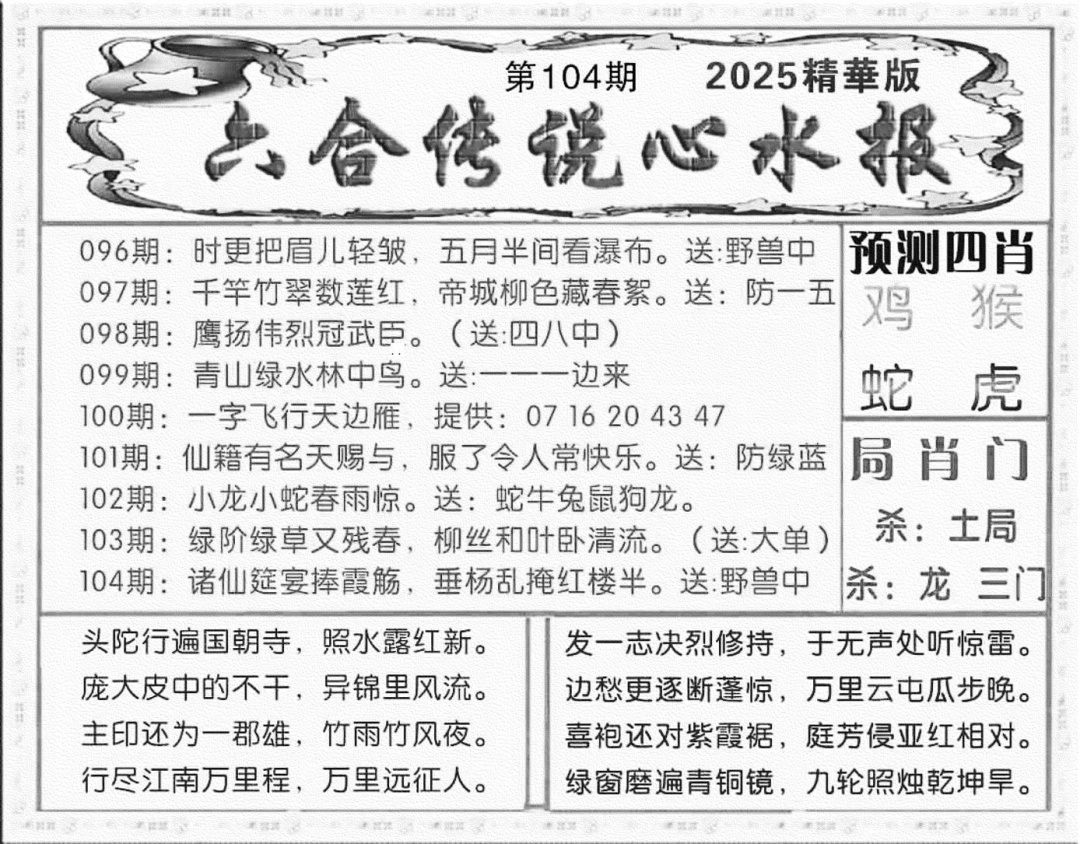 第104期 2025精華版
六合传说心水报
096期：时更把眉儿轻皱，五月半间看瀑布。送:野兽中
097期：千竿竹翠数莲红，帝城柳色藏春絮。送：防一五
098期：鹰扬伟烈冠武臣。（送:四八中）
099期：青山绿水林中鸟。送:一一一边来
100期：一字飞行天边雁，提供：07 16 20 43 47
101期：仙籍有名天赐与，服了令人常快乐。送：防绿蓝
102期：小龙小蛇春雨惊。送：蛇牛兔鼠狗龙。
103期：绿阶绿草又残春，柳丝和叶卧清流。（送:大单）
104期：诸仙筵宴捧霞觞，垂杨乱掩红楼半。送:野兽中
预测四肖
鸡 猴
蛇 虎
局肖门
杀：土局
杀：龙 三门
头陀行遍国朝寺，照水露红新。
庞大皮中的不干，异锦里风流。
主印还为一郡雄，竹雨竹风夜。
行尽江南万里程，万里远征人。
发一志决烈修持，于无声处听惊雷。
边愁更逐断蓬惊，万里云屯瓜步晚。
喜袍还对紫霞裾，庭芳侵亚红相对。
绿窗磨遍青铜镜，九轮照烛乾坤旱。